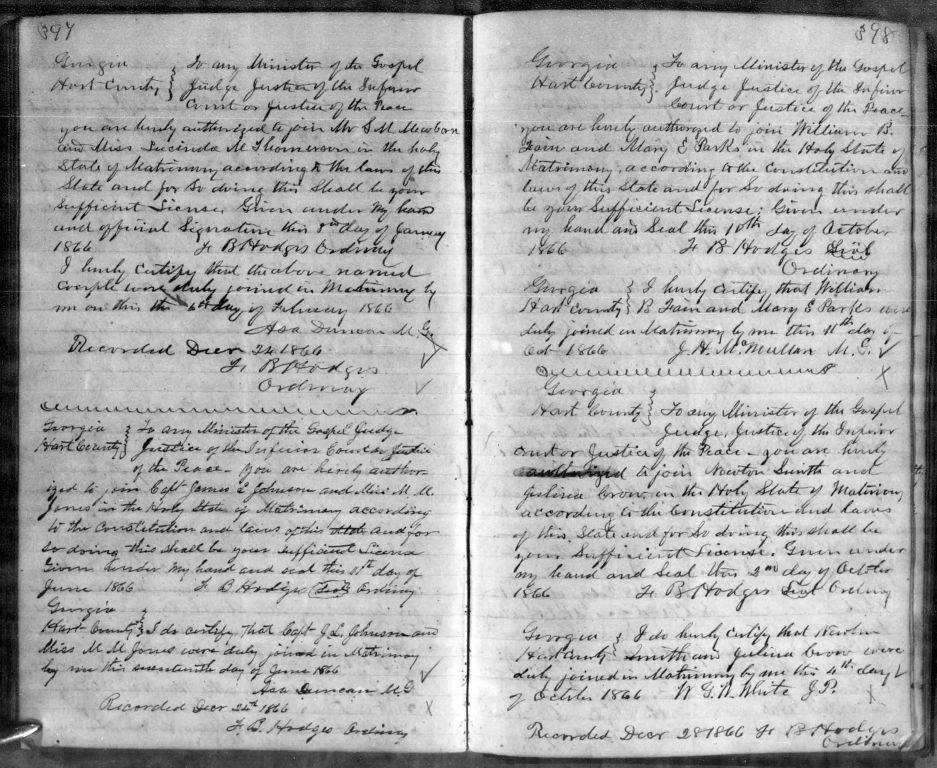 397
Georgia } To any Minister of the Gospel
Hart County } Judge Justice of the Inferior
Court or Justice of the Peace
you are hereby authorized to join Mr S. M.
and Miss Lucinda M Thomerson in the holy
State of Matrimony according to the laws of this
State and for So doing this Shall be your
Sufficient License, Given under my hand
and official Signature this 8th day of January
1866 F. B Hodges Ordinary
I hereby certify that the above named
Couple were duly joined in Matrimony by
me on this the 6th day of February 1866
Asa Duncan M. G.
Recorded Decr 24 1866
F. B Hodges
Ordinary
Georgia } To any Minister of the Gospel Judge
Hart County } Justice of the Inferior Court or Justice
of the Peace - You are hereby author-
ized to join Capt James L Johnson and Miss M. M.
Jones in the Holy State of Matrimony according
to the Constitution and laws of this State and for
so doing this Shall be your Sufficient License
Given under my hand and seal this day of
June 1866 F. B Hodges Ordinary
Georgia }
Hart County } I do certify that Capt J. L. Johnson and
Miss M. M Jones were duly joined in Matrimony
by me this seventeenth day of June 1866
Asa Duncan M G
Recorded Decr 24th 1866
F. B. Hodges Ordinary
398
Georgia } To any Minister of the Gospel
Hart County } Judge Justice of the Inferior
Court or Justice of the Peace
you are hereby authorized to join William B.
Fain and Mary E Parks in the Holy State of
Matrimony, according to the Constitution and
laws of this State and for So doing this shall
be your Sufficient License; Given under
my hand and Seal this 10th day of October
1866 F B Hodges Seal
Ordinary
Georgia } I hereby certify that William
Hart County } B Fain and Mary E Parks were
duly joined in Matrimony by me this 11th day of
Oct 1866 J. H. McMullan M. G.
Georgia }
Hart County } To any Minister of the Gospel
Judge, Justice of the Inferior
Court or Justice of the Peace - you are hereby
authorized to join Newton Smith and
Julina Crow, in the Holy State of Matrimony
according to the Constitution and Laws
of this State and for So doing this shall be
your Sufficient License. Given under
my hand and Seal this 2nd day of October
1866 F. B Hodges Seal Ordinary
Georgia } I do hereby certify that Newton
Hart County } Smith and Julina Crow were
duly joined in Matrimony by me this 4th day
of October 1866 W G. W. White J. P.
Recorded Decr 28 1866 F. B Hodges
Ordinary